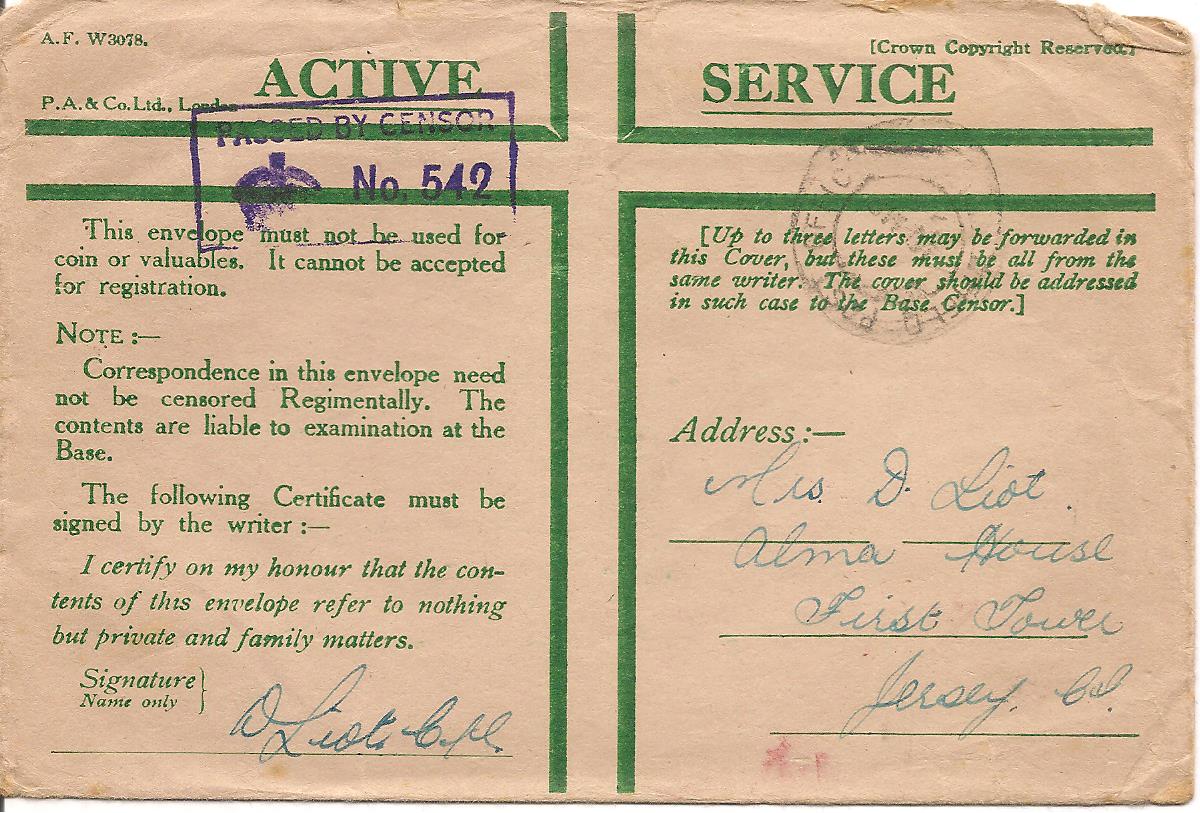 A.F. W3078.
[Crown Copyright Reserved.]
ACTIVE SERVICE
P.A. & Co. Ltd., London
PASSED BY CENSOR
No. 542
This envelope must not be used for
coin or valuables. It cannot be accepted
for registration.
NOTE :—
Correspondence in this envelope need
not be censored Regimentally. The
contents are liable to examination at the
Base.
The following Certificate must be
signed by the writer :—
I certify on my honour that the con-
tents of this envelope refer to nothing
but private and family matters.
Signature }
Name only
D Liot.
[Up to three letters may be forwarded in
this Cover, but these must be all from the
same writer. The cover should be addressed
in such case to the Base Censor.]
Address :—
Mrs. D. Liot.
Alma House
First Tower
Jersey. C.I.